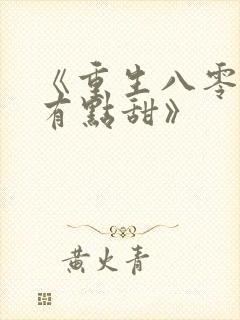 《重生八零
有點甜》
黃火青